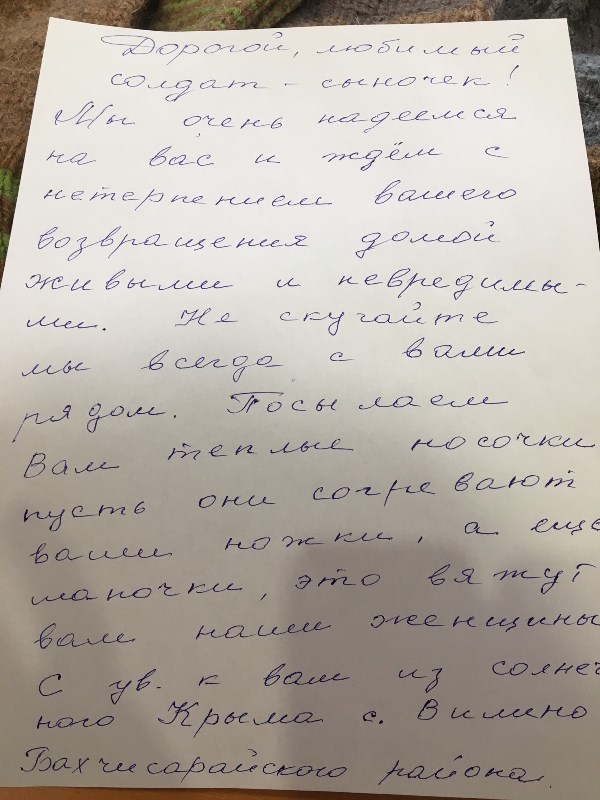 Дорогой, любимый
солдат - сыночек!
Мы очень надеемся
на вас и ждём с
нетерпением вашего
возвращения домой
живыми и невредимы-
ми. Не скучайте
мы всегда с вами
рядом. Посылаем
Вам теплые носочки
пусть они согревают
ваши ножки, а еще
шапочки, это вяжут
вам наши женщины
С ув. к вам из солнеч
ного Крыма с. Вилино
Бахчисарайского района.